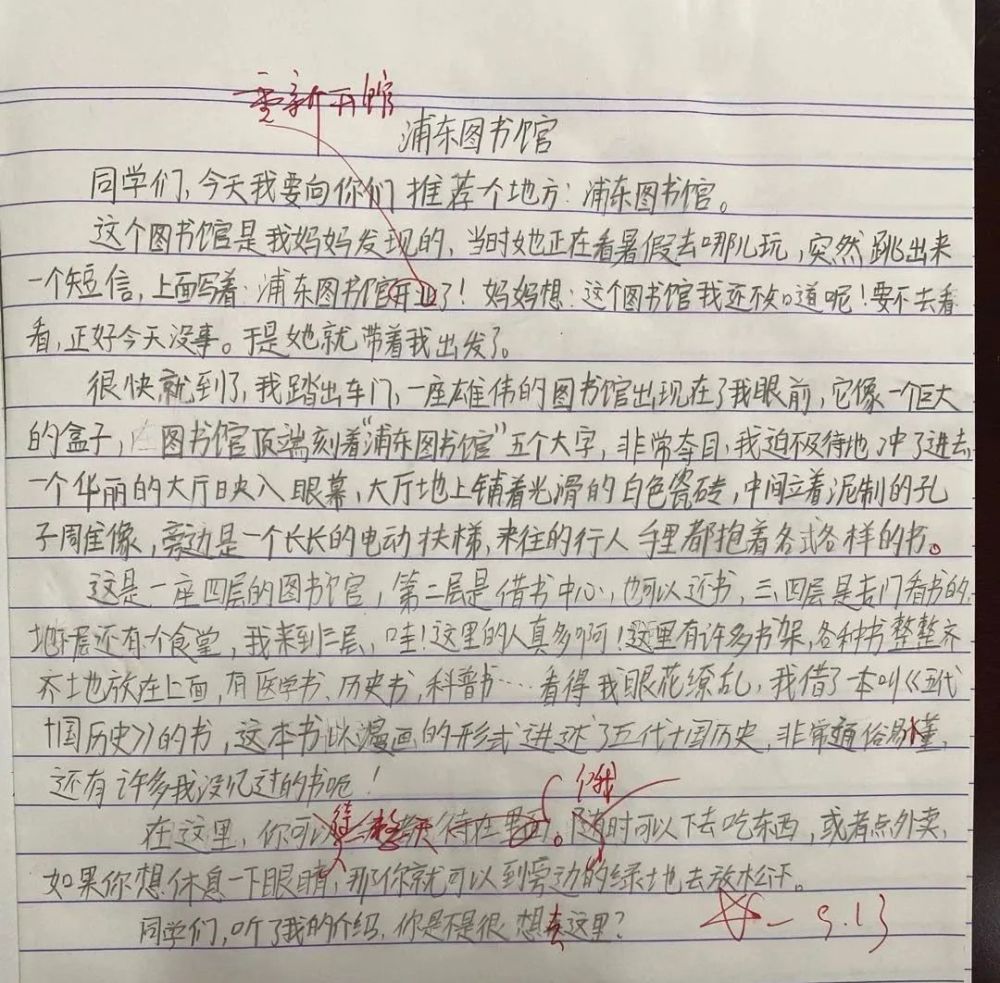 重新开馆
浦东图书馆
同学们,今天我要向你们推荐个地方:浦东图书馆。
这个图书馆是我妈妈发现的,当时她正在看暑假去哪儿玩,突然跳出来
一个短信,上面写着:浦东图书馆开业了!妈妈想:这个图书馆我还不知道呢!要不去看
看,正好今天没事。于是她就带着我出发了。
很快就到了,我踏出车门,一座雄伟的图书馆出现在了我眼前,它像一个巨大
的盒子,图书馆顶端刻着“浦东图书馆”五个大字,非常夺目,我迫不及待地冲了进去,
一个华丽的大厅映入眼幕,大厅地上铺着光滑的白色瓷砖,中间立着泥制的孔
子周隹像,旁边是一个长长的电动扶梯,来往的行人手里都抱着各式各样的书。
这是一座四层的图书馆,第二层是借书中心,也可以还书,三、四层是专门看书的,
地下层还有个食堂,我来到三层,哇!这里的人真多啊!这里有许多书架,各种书整整齐
齐土地放在上面,有医学书、历史书,科普书…看得我眼花缭乱,我借了一本叫《五代
十国历史》的书,这本书以漫画的形式讲述了五代十国历史,非常通俗易懂,
还有许多我没见过的书呢!
在这里,你可以待在里面。随时可以下去吃东西,或者点外卖,
如果你想休息一下眼睛,那你就可以到旁边的绿地去放松。
同学们,听了我的介绍,你是不是很想去这里?
9.13